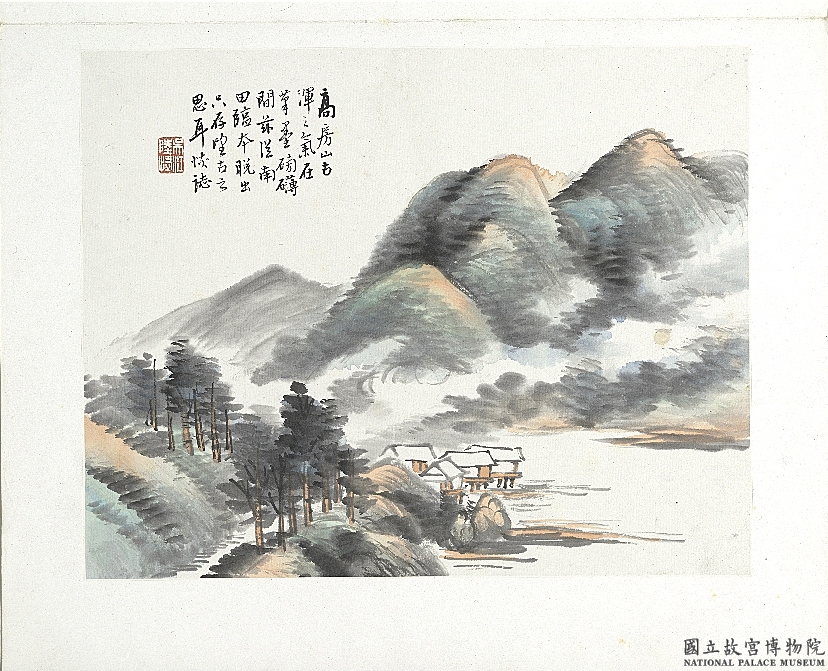 高房山書
渾々氣在
筆墨磅礴
間茲從南
田臨本脫出
只存望古之
思耳 恢誌
國立故宮博物院
NATIONAL PALACE MUSEUM